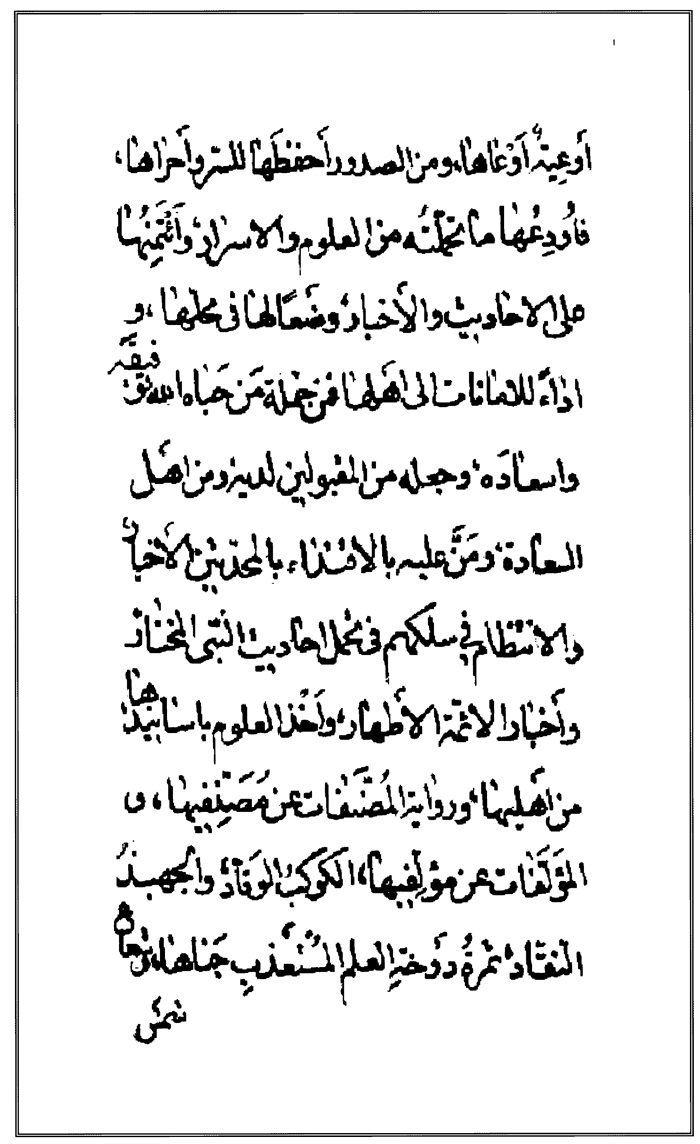 أوعيةً أوعاها، ومن الصدور أحفظَها للسر وأحراها،
فأُودِعُها ما تحملتُه من العلوم والاسرار، وأئتمِنُها
على الاحاديث والأخبار، وضعًا لها فى محلها، و
اداءً للامانات الى اهلها فمن جملة مَن حَباه الله توفيقَه
واسعادَه، وجعله من المقبولين لديه ومن اهل
السعادة، ومَنَّ عليه بالاقتداء بالمحدّثين الأخيار
والانتظام في سلكهم فى تحمل احاديث النّبى المختار
وأخبار الائمّة الأطهار، وأخْذ العلوم باسانيدها
من أهليها، ورواية المُصَنَّفات عن مُصَنِّفيها، و
المؤلَّفات عن مؤلِّفيها، الكَوكَبُ الوَقاد، والجهبذُ
النقاد، ثمرةُ دَوحَةِ العلم المُستعذَبِ جَناها،
شمس